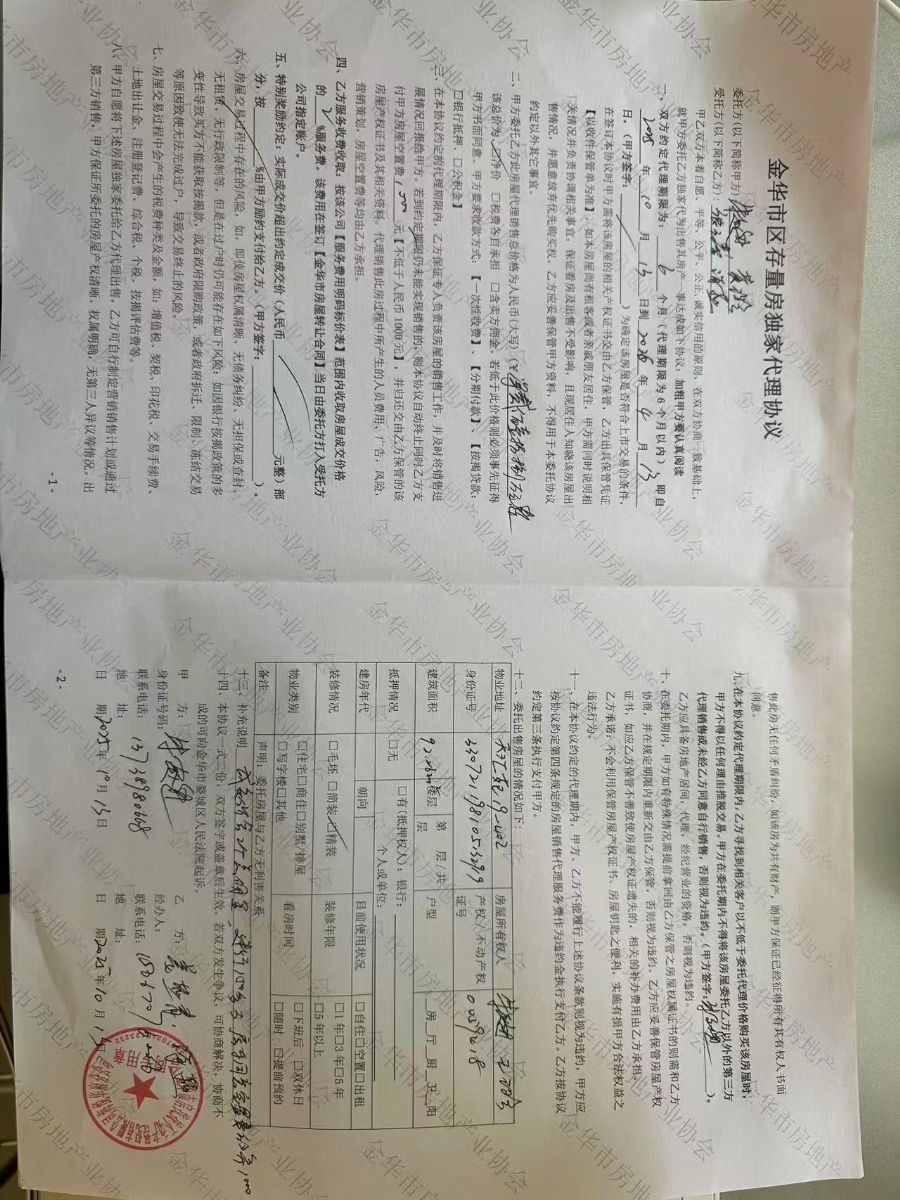 金华市区存量房独家代理协议
委托方(以下简称甲方):
受托方(以下简称乙方):
甲乙双方本着自愿、平等、公平、公正、诚实信用的原则，在双方协商一致基础上，
就甲方委托乙方独家代为出售其房产一事达成如下协议，加粗甲方要认真阅读
双方约定代理期限为: 6 个月(代理期限为6个月以内)，即自
2025 年 10 月 13 日到 2026 年 4 月 13
日。(甲方签字: )为确定该房屋是否符合上市交易的条件，
在签订本协议时甲方需将该房屋的相关产权证书交由乙方保管，乙方出具保管凭证
【以收件保管单为准】。如本房屋尚有租客或者亲戚朋友居住，甲方需同时说明相
关情况并负责协调相关事宜，保证看房及销售不受影响，且现居住人知晓该房屋出
售情况，并愿意放弃优先购买权。乙方应妥善保管甲方资料，不得用于本委托协议
约定以外其它事宜。
二、甲方委托乙方此房屋代理销售总价格为人民币(大写)
该总价为 净价 □税费各自承担 □含卖方佣金。若低于此价格则必须事先征得
甲方书面同意，甲方要求收款方式:【一次性收费】、【分期付款】、【按揭贷款:
□银行抵押、□公积金】
三、在本协议约定的代理期限内，乙方保证专人负责该房屋的销售工作，并及时将销售进
展情况回报给甲方。若到约定期限仍未能实现销售的，则本协议自动终止同时乙方支
付甲方房屋空置费 元【不低于人民币1000元】，并归还交由乙方保管的该
房屋产权证书及其相关资料。代理销售此房过程中所产生的人员费用、广告、风险、
营销策划，房屋空置费等均由乙方承担。
四、乙方服务收费收取，按该公司【服务费用明码标价表】范围内收取房屋成交价格
的 2 %服务费。该费用在签订【金华市房屋转让合同】当日由委托方打入受托方
公司指定账户。
五、特别奖励约定，实际成交价超出约定成交价(人民币 元整)部
分，按 %由甲方励约支付给乙方。(甲方签字: )。
六、房屋交易过程中存在的风险，如，即使房屋权属清晰、无债务纠纷、无担保或查封、
无租赁、无行政限制等，但是在过户时仍可能存在如下风险:如因银行按揭政策的多
变性导致买方不能获取按揭款，或者政府限购政策，或者政府拆迁、限制、冻结交易
等原因致使无法完成过户，导致交易终止的风险。
七、房屋交易过程中会产生的税费种类及金额，如:增值税、契税、印花税、交易手续费、
土地出让金、注册登记费、综合税、个税、按揭评估费等。
八、甲方自愿将下述房屋独家委托给乙方代理出售，乙方可自行制定营销销售计划或通过
第三方销售，甲方保证所委托的房屋产权清晰，权属明确，无第三人异议等情况。出
-1-
售此房无任何矛盾纠纷，如该房为共有财产，则甲方保证已经征得所有共有权人书面
同意。
九、在本协议约定代理期限内，乙方寻找到相关客户以不低于委托代理价格购买该房屋时，
甲方不得以任何理由推脱交易。甲方在委托期内不得将该房屋委托乙方以外的第三方
代理销售或未经乙方同意自行销售，否则视为违约。(甲方签字: )。
乙方应具备房地产居间，代理，经纪营业的资格，否则视为违约。
十、在委托期内，甲方如有特殊情况需提前拿回由乙方保管之房屋权属证书的则需和乙方
协商，并在规定期限内重新交由乙方保管，否则视为违约。乙方应妥善保管房屋产权
证书，如应乙方保管不善致使房屋产权证遗失的，相关的补办费用由乙方承担。
乙方承诺:不会利用保管房屋产权证书、房屋钥匙之便利，实施有损甲方合法权益之
违法行为。
十一、在本协议约定的代理期内，甲方、乙方不能履行上述协议条款则视为违约，甲方应
按协议约定第四条规定的房屋销售代理服务费作为违约金执行支付乙方。乙方按协议
约定第三条执行支付甲方。
十二、委托出售房屋的情况如下:
物业地址 房屋所有权人
身份证号 产权/不动产权证号
建筑面积 楼层 第 层/共 层 户型 房 厅 厨 卫 阳
抵押情况 □无 □有(抵押权人):银行: 个人或单位:
建房年代 朝向 目前使用状况 □自住□空置□出租
装修情况 □毛坯 □简装 精装 装修年限 □1年□3年□5年 □5年以上
物业类别 □住宅□商住□别墅/排屋 □写字楼□其他 看房时间 □下班后 □双休日 □随时 □提前预约
备注 声明:委托房屋与乙方无利害关系
十三、补充说明
十四、本协议一式二份，双方签字或盖章后生效。若双方发生争议，可协商解决，协商不
成的可向金华市婺城区人民法院起诉。
甲 方: 乙 方:
身份证号码: 经办人:
联系电话: 联系电话:
地 址: 地 址:
日 期2025年10月13日 日 期2025年10月13日
-2-
金华市房地产业协会